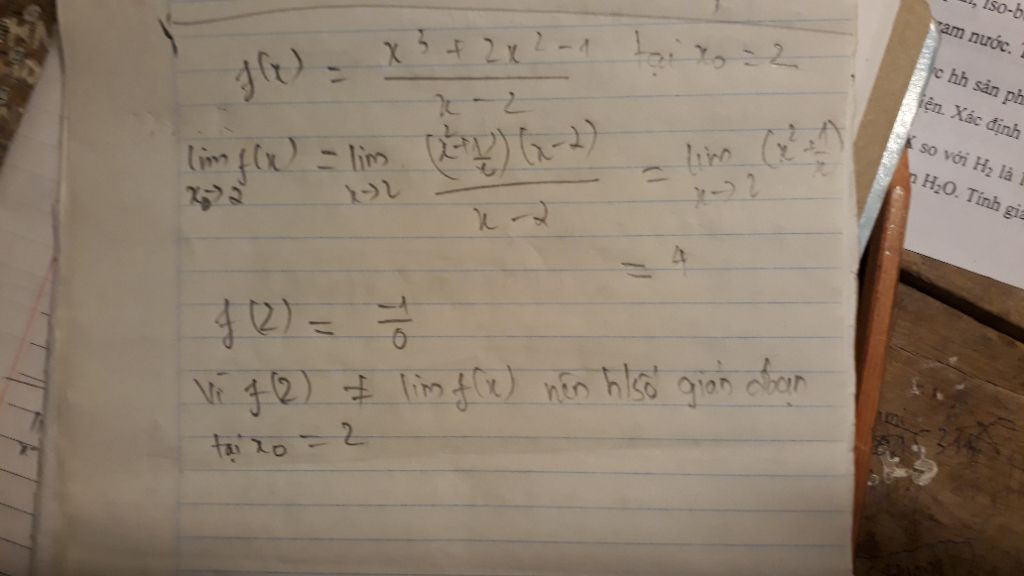 f(x) = \frac{x^3 + 2x^2 - 1}{x - 2} tại x_0 = 2
\lim_{x \to 2} f(x) = \lim_{x \to 2} \frac{(x^2 + \frac{1}{x})(x - 2)}{x - 2} = \lim_{x \to 2} (x^2 + \frac{1}{x})
= 4
f(2) = \frac{-1}{0}
Vì f(2) ≠ lim f(x) nên h/số gián đoạn
tại x_0 = 2
iso-b
gam nước.
hh sản ph
Xác định
so với H_2 là
H_2O. Tính giá